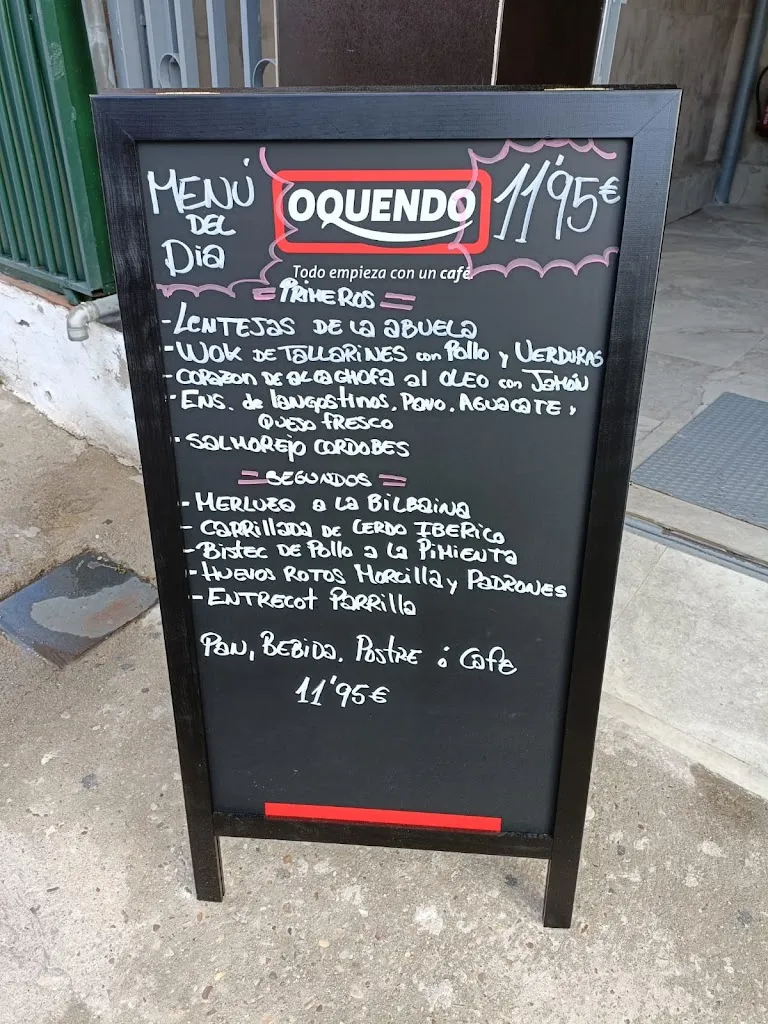 MENÚ
DEL
Dia
OQUENDO
11'95€
Todo empieza con un café.
= PRIMEROS =
- LENTEJAS DE LA ABUELA
- WOK DE TALLARINES con Pollo y VERDURAS
- CORAZON DE ALCAGHOFA al OLEO con JAMÓN
- ENS. de langostinos, Pavo, AGUACATE y
QUESO FRESCO
- SALMOREJO CORDOBES
= SEGUNDOS =
- MERLUZA a LA BILBAINA
- CARRILLADA DE CERDO IBERICO
- BISTEC DE Pollo a La PIMIENTA
- HUEVOS ROTOS Morcilla y PADRONES
- ENTRECOT PARRILLA
PAN, BEBIDA, POSTRE ó CAFE
11'95€